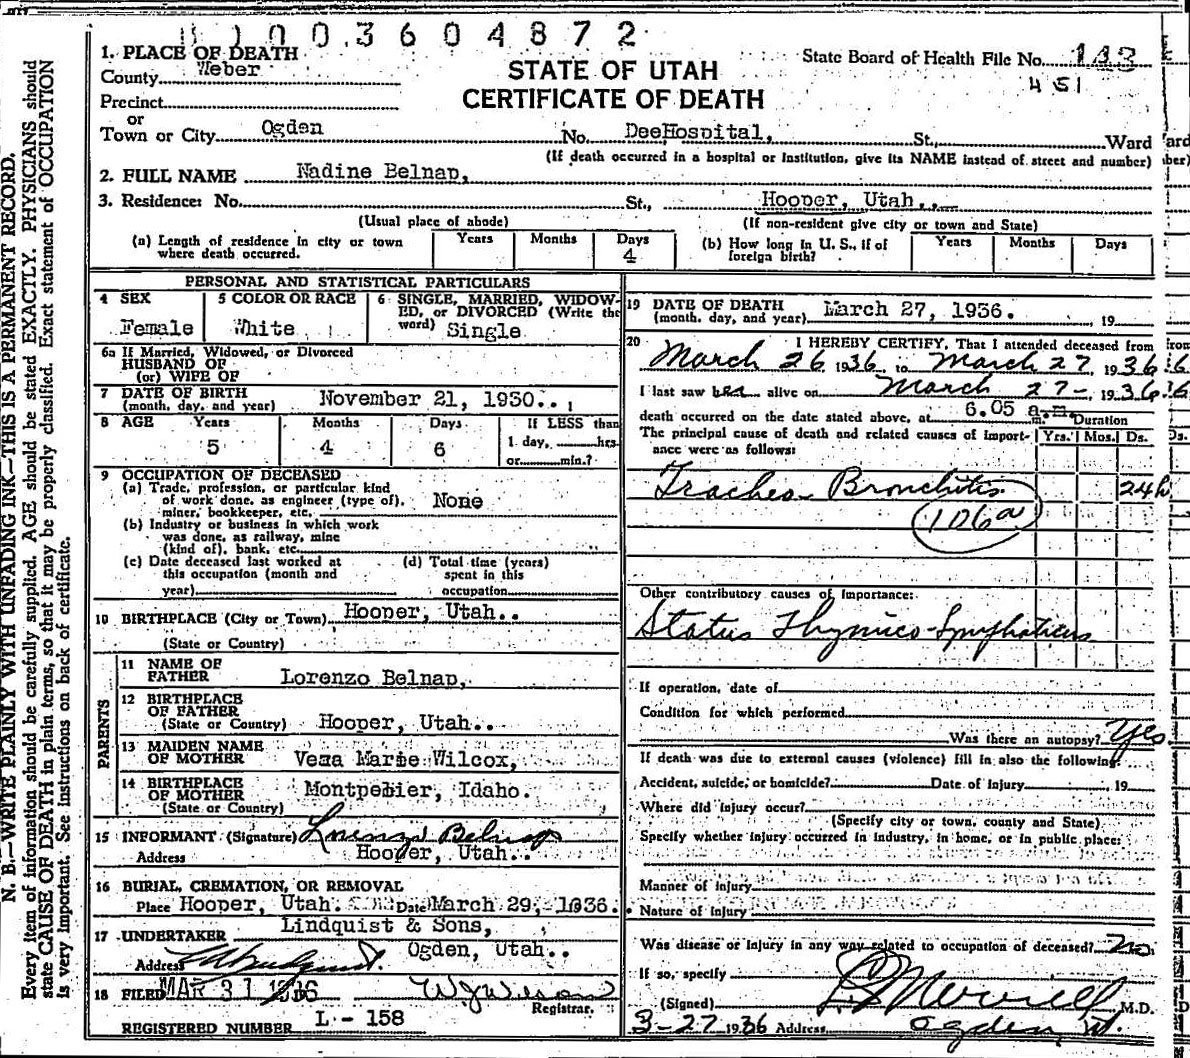 1003604872
1. PLACE OF DEATH
County Weber
State Board of Health File No. 143
451
STATE OF UTAH
CERTIFICATE OF DEATH
Precinct
or
Town or City Ogden No. DeeHospital, St., Ward
(If death occurred in a hospital or institution, give its NAME instead of street and number)
2. FULL NAME Nadine Belnap,
3. Residence: No. St., Hooper, Utah.,
(Usual place of abode) (If non-resident give city or town and State)
(a) Length of residence in city or town where death occurred. Years Months Days 4
(b) How long in U. S., if of foreign birth? Years Months Days
PERSONAL AND STATISTICAL PARTICULARS
4 SEX Female
5 COLOR OR RACE White
6 SINGLE, MARRIED, WIDOWED, or DIVORCED (Write the word) Single
6a If Married, Widowed, or Divorced
HUSBAND OF
(or) WIFE OF
7 DATE OF BIRTH
(month, day, and year) November 21, 1930..
8 AGE Years 5 Months 4 Days 6 If LESS than
1 day, hrs.
or min.?
9 OCCUPATION OF DECEASED
(a) Trade, profession, or particular kind
of work done, as engineer (type of),
miner, bookkeeper, etc. None
(b) Industry or business in which work
was done, as railway, mine
(kind of), bank, etc.
(c) Date deceased last worked at
this occupation (month and
year)
(d) Total time (years)
spent in this
occupation
10 BIRTHPLACE (City or Town) Hooper, Utah..
(State or Country)
PARENTS
11 NAME OF
FATHER Lorenzo Belnap,
12 BIRTHPLACE
OF FATHER
(State or Country) Hooper, Utah..
13 MAIDEN NAME
OF MOTHER Vera Marie Wilcox,
14 BIRTHPLACE
OF MOTHER
(State or Country) Montpelier, Idaho.
15 INFORMANT (Signature) Lorenzo Belnap
Address Hooper, Utah..
16 BURIAL, CREMATION, OR REMOVAL
Place Hooper, Utah. Date March 29, 1936.
17 UNDERTAKER Lindquist & Sons,
Address Ogden, Utah..
18 FILED MAR 31 1936
Registrar.
REGISTERED NUMBER L - 158
19 DATE OF DEATH
(month, day, and year) March 27, 1936. , 19
20 I HEREBY CERTIFY, That I attended deceased from
March 26 1936 to March 27, 1936
I last saw her alive on March 27-, 1936
death occurred on the date stated above, at 6.05 a.m.
Duration
The principal cause of death and related causes of importance were as follows: Yrs. Mos. Ds.
Tracheo-Bronchitis 24h
106a
Other contributory causes of importance:
Status Thymico-Lymphaticus
If operation, date of
Condition for which performed
Was there an autopsy? Yes
If death was due to external causes (violence) fill in also the following:
Accident, suicide, or homicide? Date of Injury , 19
Where did injury occur?
(Specify city or town, county and State)
Specify whether injury occurred in industry, in home, or in public place:
Manner of injury
Nature of injury
Was disease or injury in any way related to occupation of deceased? No
If so, specify
(Signed) Merrell M.D.
3-27 1936 Address Ogden, Ut.
N. B.—WRITE PLAINLY WITH UNFADING INK—THIS IS A PERMANENT RECORD.
Every item of information should be carefully supplied. AGE should be stated EXACTLY. PHYSICIANS should
state CAUSE OF DEATH in plain terms, so that it may be properly classified. Exact statement of OCCUPATION
is very important. See instructions on back of certificate.